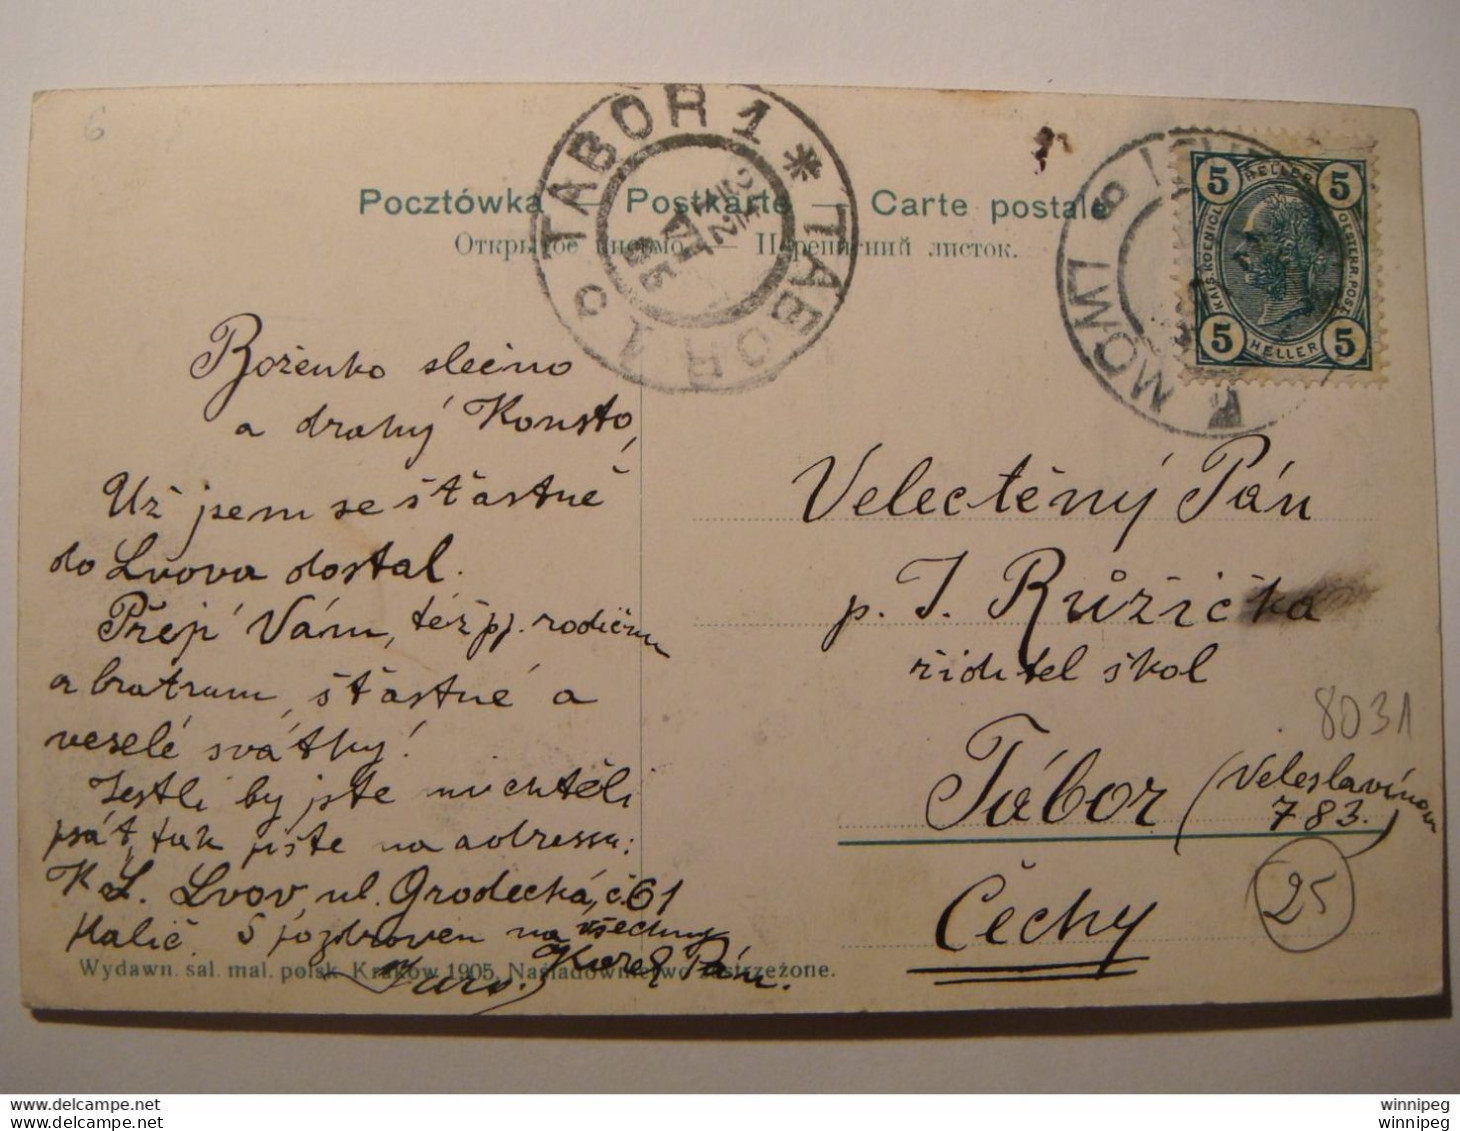 6
TABOR 1 * TABOR 1
LWÓW 1
Pocztówka — Postkarte — Carte postale
Открытое письмо. — Переписний листок.
5 HELLER 5
KAIS. KOENIGL. OESTERR. POST.
5 HELLER 5
Boženko slečno
a drahý Konsto,
Už jsem se šťastně
do Lvova dostal.
Přeji Vám, též pj. rodičům
a bratrum, šťastné a
veselé svátky!
Jestli by jste mi chtěli
psát, tak pište na adressu:
K. L. Lvov, ul. Grodecká, č. 61
Halič. S pozdravem na všechny
Karel
Wydawn. sal. mal. polsk. Kraków 1905. Naśladownictwo zastrzeżone.
Velectěný Pán
p. J. Růžička
řiditel škol
8031
Tábor (Veleslavínova
783.)
25
Čechy
winnipeg
winnipeg
winnipeg
winnipeg